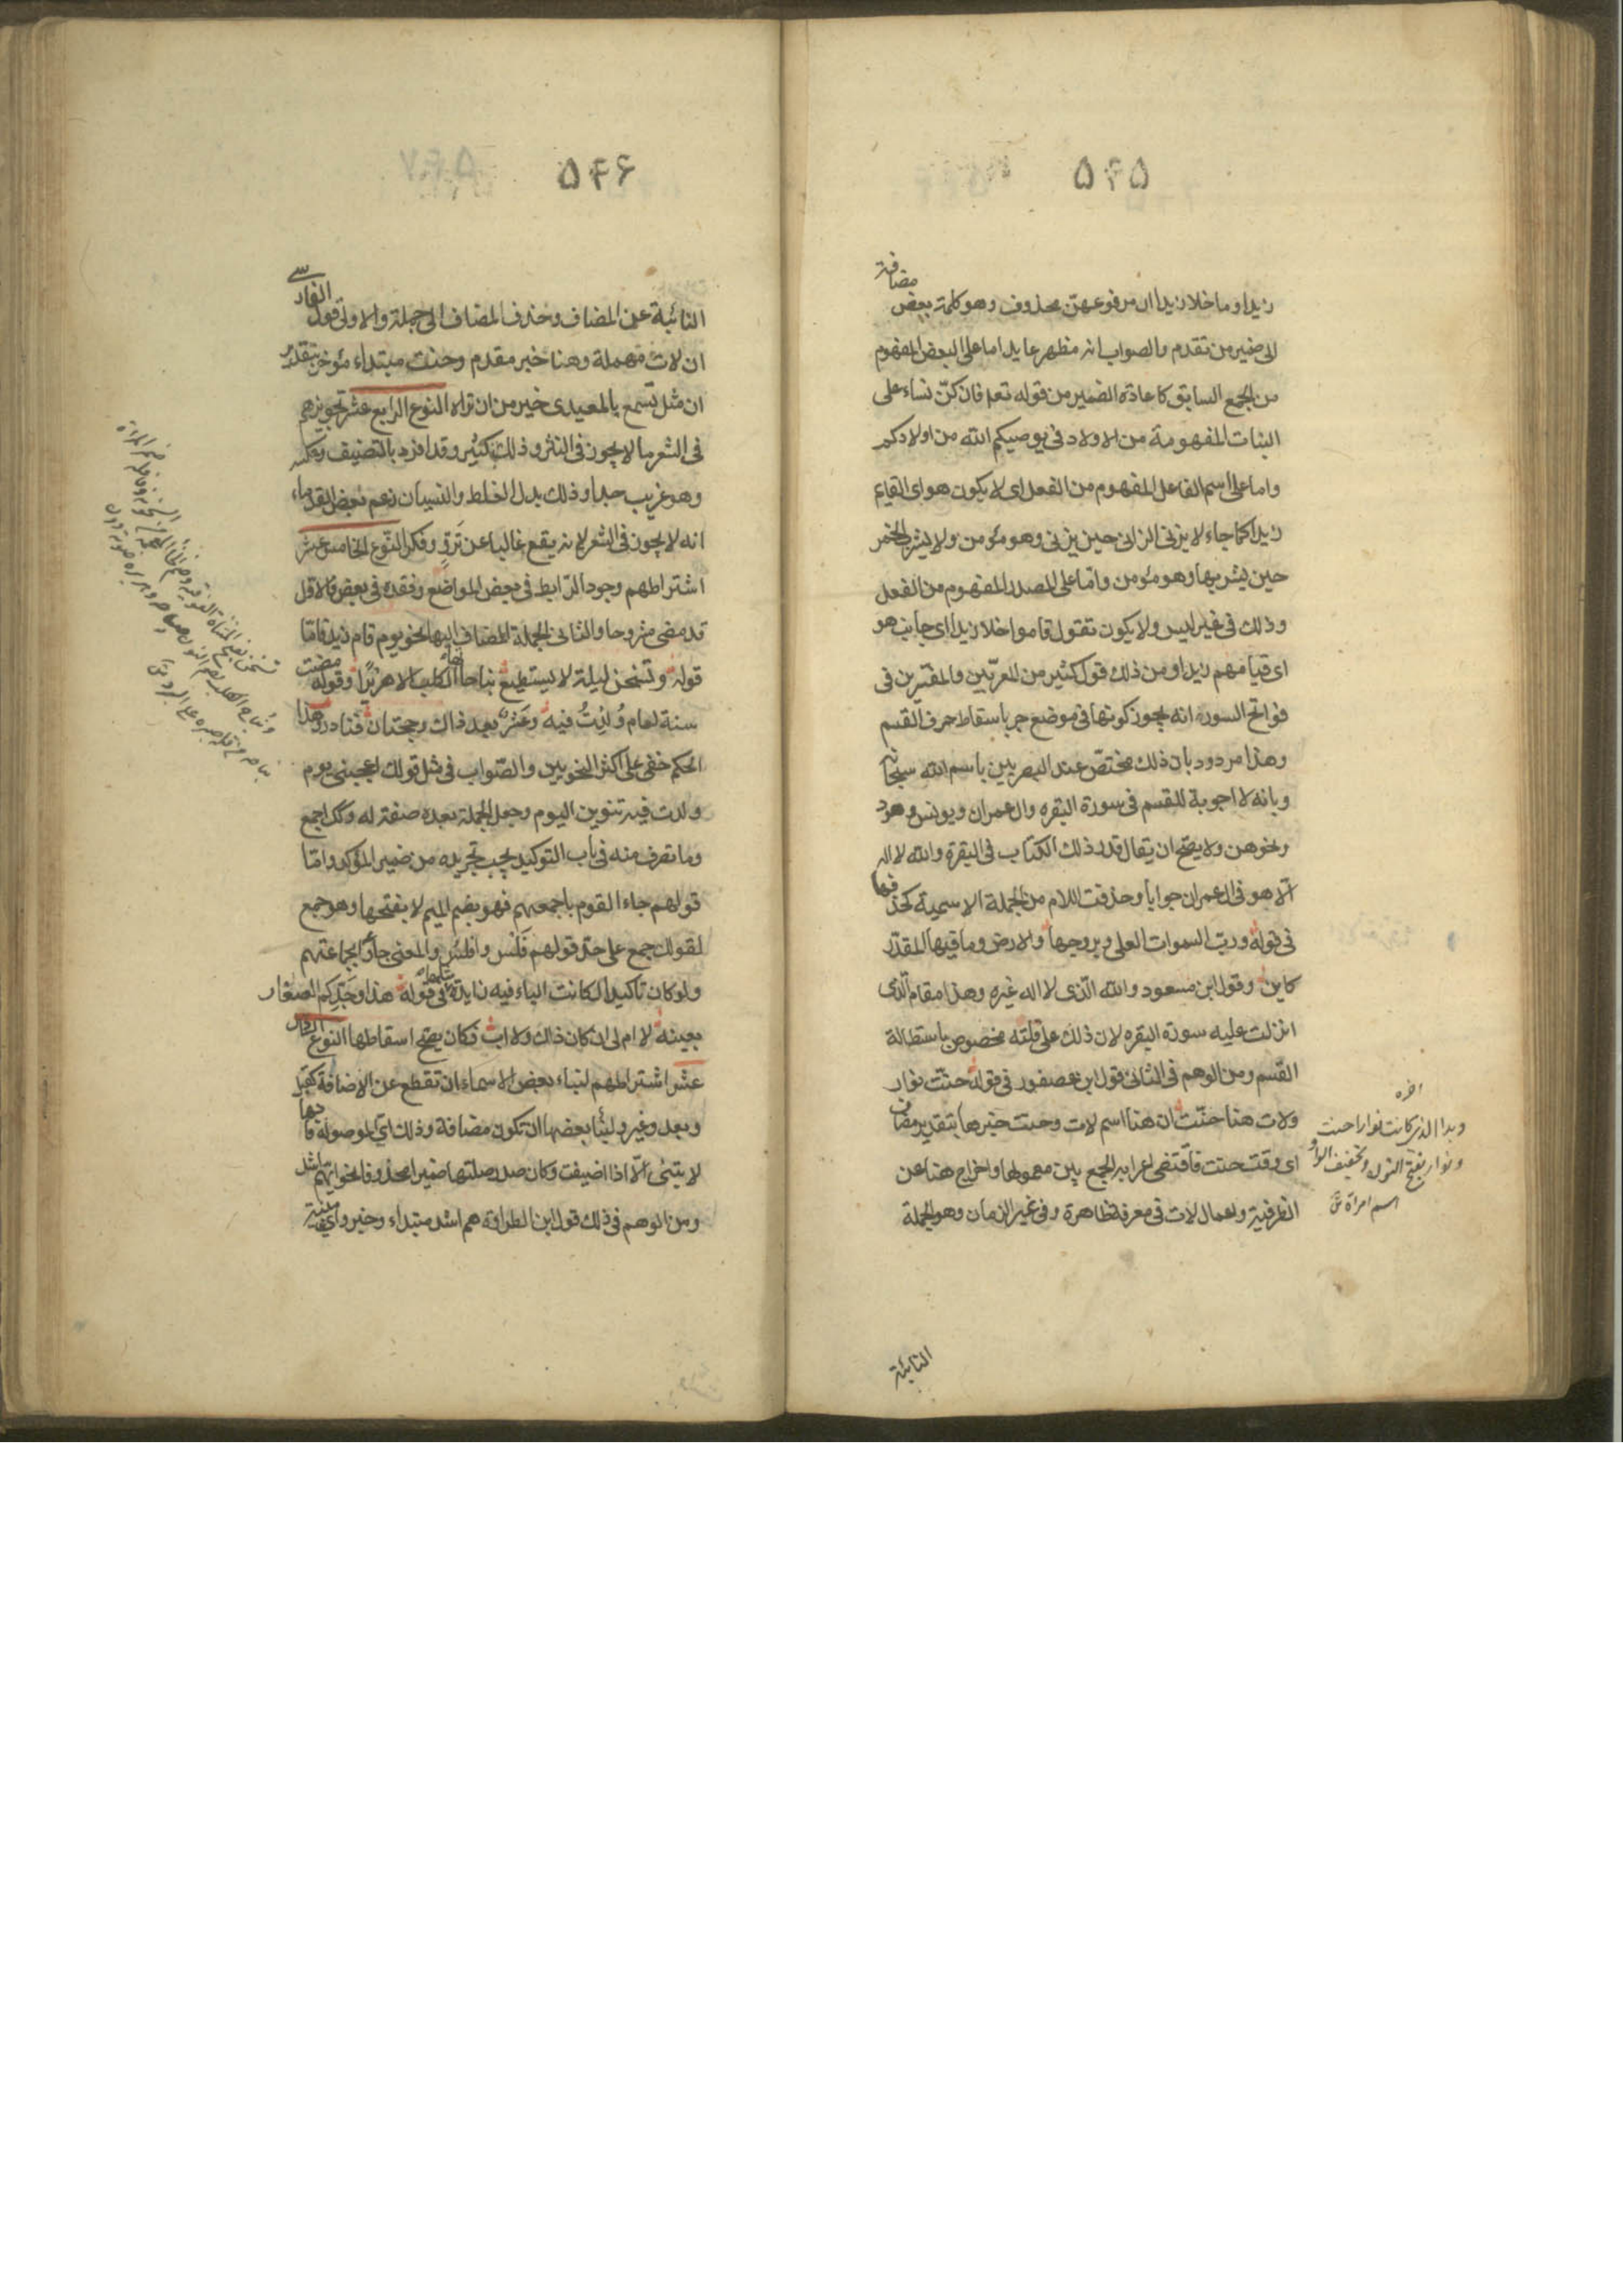 ۵۴۵
زيدا وما خلا زيدا ان مرفوعهن محذوف وهو كلمة بعض مضافة
الى ضمير من تقدم والصواب انه مظهر عايد اما على البعض المفهوم
من الجمع السابق كما عاده الضمير من قوله تعه فان كنّ نساء على
البنات المفهومة من الاولاد فى يوصيكم الله من اولادكم
واما على اسم الفاعل المفهوم من الفعل اى لا يكون هو اى القايم
زيدا كما جاء لا يزنى الزانى حين يزنى وهو مئومن ولا يشرب الخمر
حين يشربها وهو مئومن واما على المصدر المفهوم من الفعل
وذلك فى غير ليس ولا يكون تقول قاموا خلا زيدا اى جانب هو
اى قيامهم زيدا ومن ذلك قول كثير من المعربين والمفسرين فى
فواتح السوره انه يجوز كونها فى موضع جر باسقاط حرف القسم
وهذا مردود بان ذلك مختص عند البصريين باسم الله سبحانه
وبانه لا اجوبة للقسم فى سورة البقره وال عمران ويونس وهود
ونحوهن ولا يصح ان يقال قدر ذلك الكتاب فى البقرة والله لا اله
الا هو فى ال عمران جوابا وحذفت اللام من الجملة الاسمية كحذفها
فى قوله ورب السموات العلى وبروجها والارض وما فيها المقدر
كاين وقول ابن مسعود والله الذى لا اله غيره وهذا مقام الذى
انزلت عليه سورة البقره لان ذلك على قلته مخصوص باستطالة
القسم ومن الوهم فى الثانى قول ابن عصفور فى قوله حنت نوار
ولات هنا حنت ان هنا اسم لات وحنت خبرها بتقدير مضاف
اى وقت حنت فاقتضى اعرابه الجمع بين معموليها واخراج هنا عن
الظرفية واعمال لات فى معرفة ظاهرة وفى غير الزمان وهو الجملة
النايئة
اخره
وبدا الذى كانت نوار اجنت
ونوار بفتح النون وتخفيف الواو
اسم امراة
۵۴۶
النائبة عن المضاف وحذف المضاف الى جملة والاولى قول الفارسى
ان لات مهملة وهنا خبر مقدم وحنت مبتداء مئوخر بتقدير
ان مثل تسمع بالمعيدى خير من ان تراه النوع الرابع عشر تجويزهم
فى الشعر ما لا يجوز فى النثر وذلك كثير وقد افرد بالتصنيف وعكسه
وهو غريب جدا وذلك بدل الغلط والنسيان زعم بعض القدماء
انه لا يجوز فى الشعر لانه يقع غالبا عن تَرَوٍّ وفكر النوع الخامس عشر
اشتراطهم وجود الرابط فى بعض المواضع وفقده فى بعض فالاول
قد مضى مشروحا والثانى الجملة المضاف اليها نحو يوم قام زيد فاما
قوله وتسخن ليلة لا يستطيع نباحا بها الكلب الا هريرًا وقوله مضت
سنة لعام وُلِدْتُ فيه وعَشْر بعد ذاك وحجتان فنادر وهذا
الحكم خفى على اكثر النحويين والصواب فى مثل قولك اعجبنى يوم
ولدت فيه تنوين اليوم وجعل الجملة بعده صفة له وكك اجمع
وما تصرف منه فى باب التوكيد يجب تجريده من ضمير المؤكد واما
قولهم جاءا القوم باجمعهم فهو بضم الميم لا بفتحها وهو جمع
لقولك جمع على حد قولهم فَلْس وافلُس والمعنى جاؤا بجماعتهم
ولو كان تاكيدا لكانت الباء فيه زايدة مثلها فى قوله هذا وجَدِّكم الصغار
بعينه لا ام لى ان كان ذاك ولا اب فكان يصح اسقاطها النوع السادس
عشر اشتراطهم لبناء بعض الاسماء ان تقطع عن الاضافة كقبل
وبعد وغير ولبناء بعضها ان تكون مضافة وذلك اى الموصوله فانها
لا يبنى الا اذا اضيفت وكان صدر صلتها ضميرا محذوفا نحو ايهم اشد
ومن الوهم فى ذلك قول ابن الطراوة هم اشد مبتداء وخبر واى مبنية